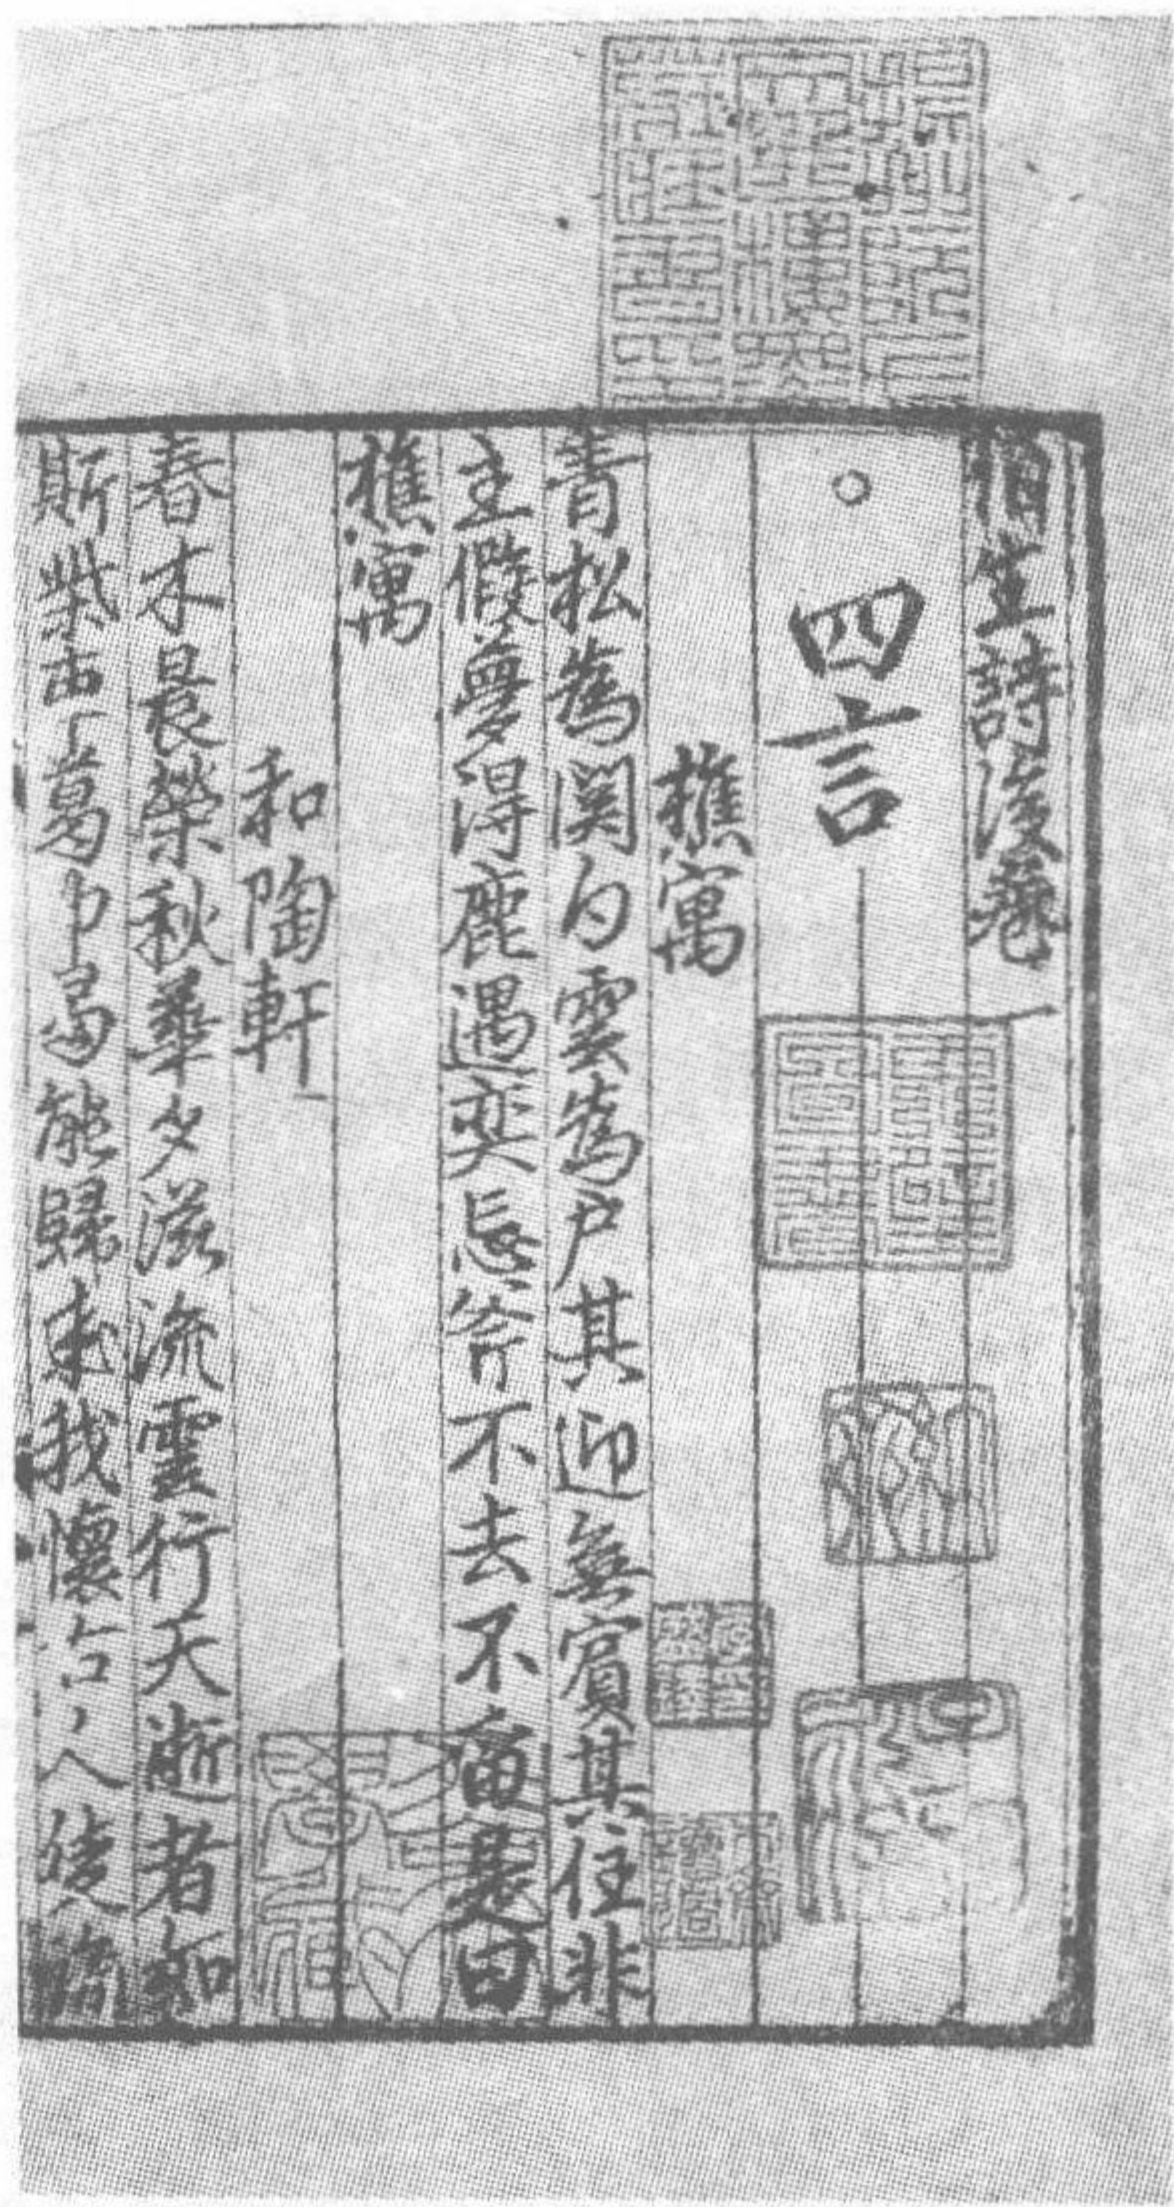 伯生詩後卷一
四言
樵寓
青松為関白雲為戶其迎無賓其往非
主假夢得鹿遇奕忘斧不去不留是曰
樵寓
和陶軒
春木晨榮秋華夕滋流雲行天逝者如
斯柴葛巾曷能歸来我懷古人